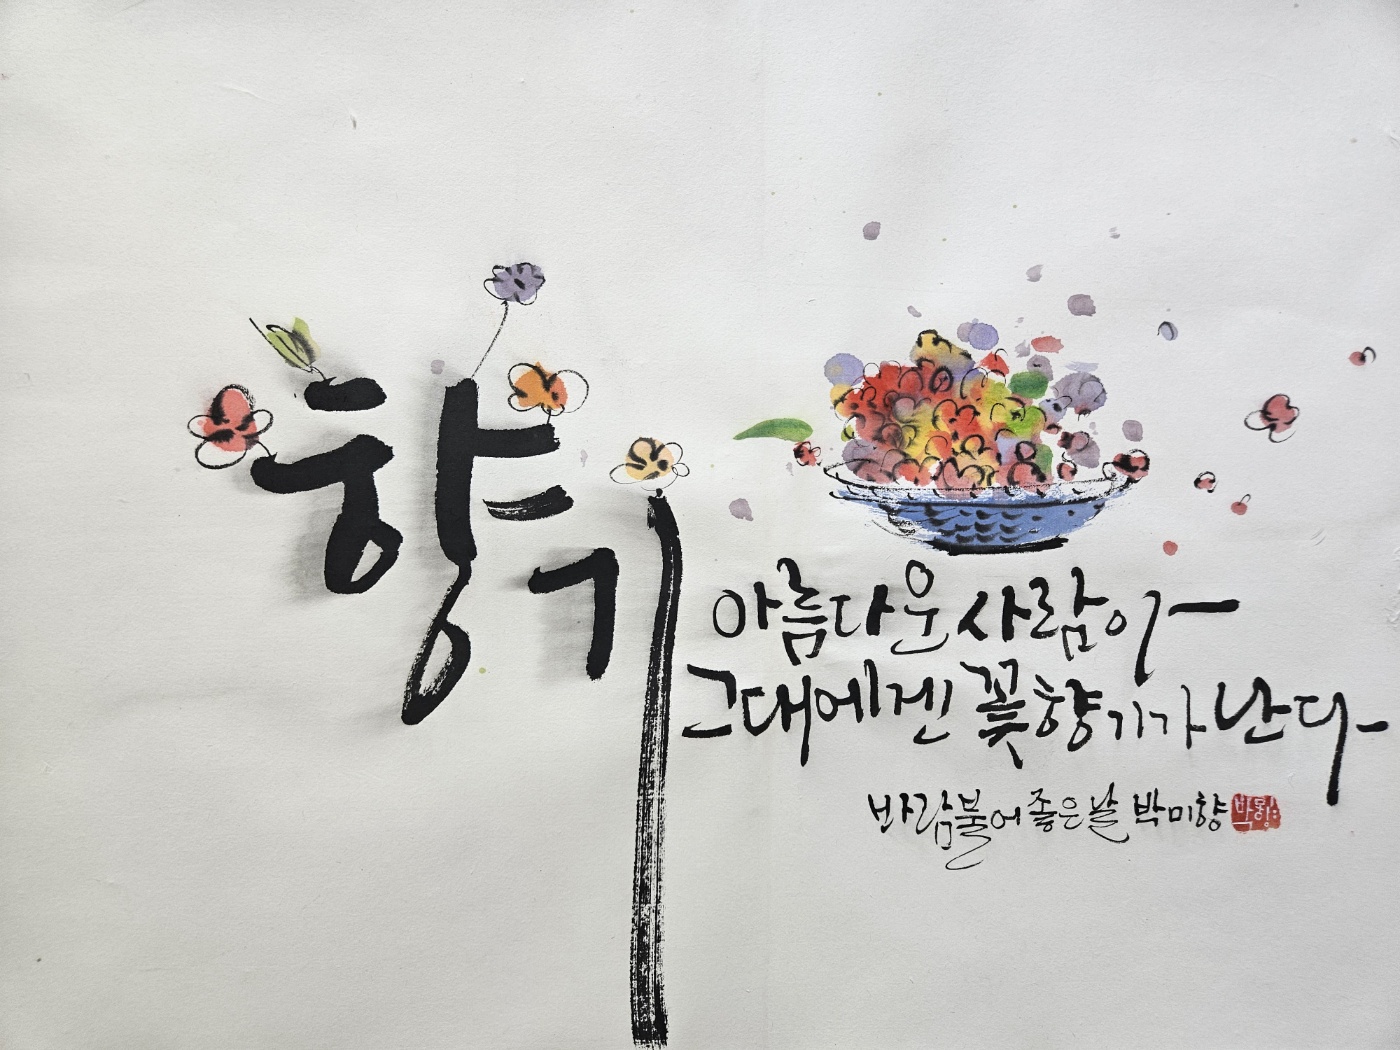 향기
아름다운 사람아
그대에겐 꽃향기가 난다
바람불어 좋은날 박미향